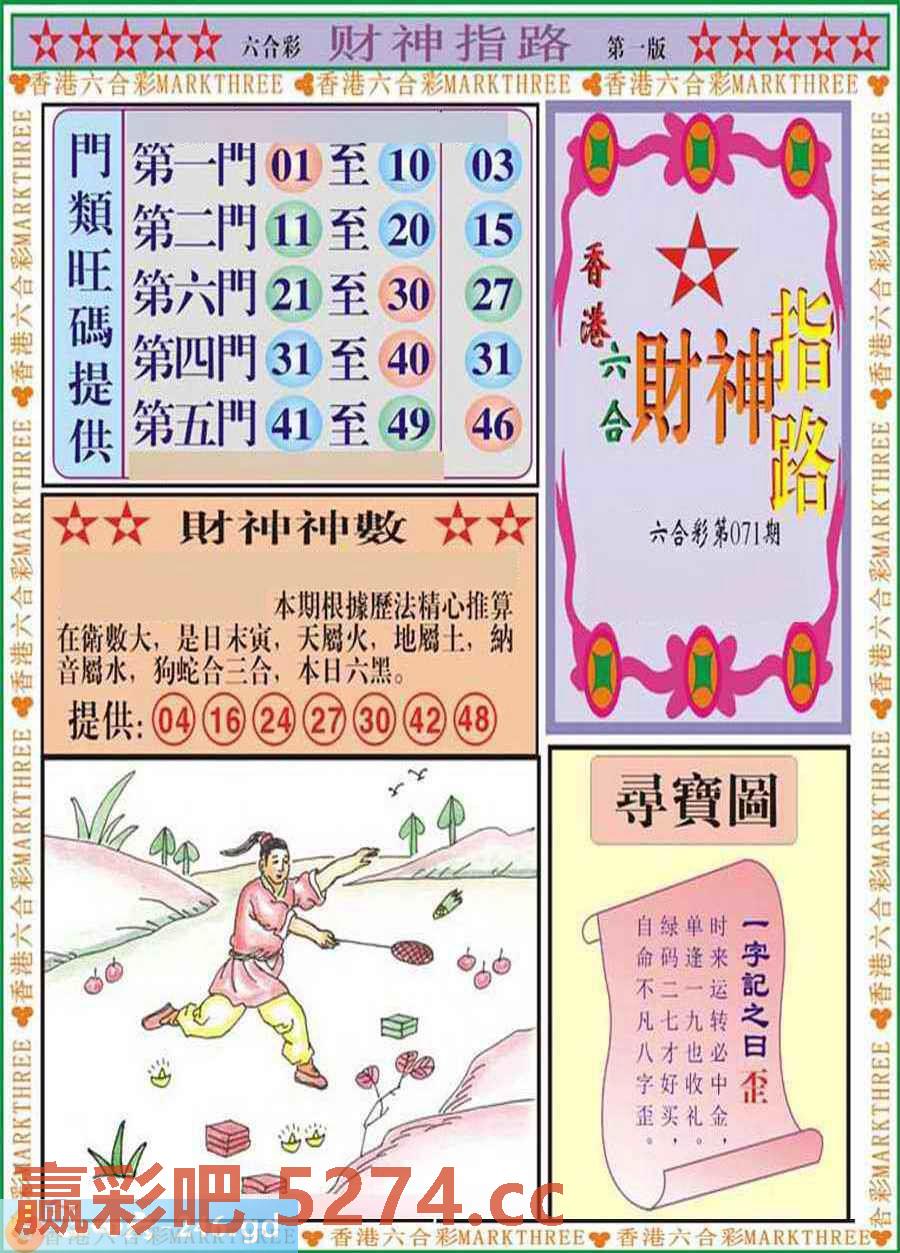 六合彩 财神指路 第一版
香港六合彩MARKTHREE 香港六合彩MARKTHREE 香港六合彩MARKTHREE
門類旺碼提供
第一門 01 至 10 03
第二門 11 至 20 15
第六門 21 至 30 27
第四門 31 至 40 31
第五門 41 至 49 46
香港六合
財神指路
六合彩第071期
財神神數
本期根據歷法精心推算
在術數大，是日末寅，天屬火，地屬土，納
音屬水，狗蛇合三合，本日六黑。
提供: 04 16 24 27 30 42 48
尋寶圖
一字記之曰 歪
时来运转必中金，
单逢一九也收礼。
绿码二七才好买，
自命不凡八字歪。
赢彩吧 5274.cc
香港六合彩MARKTHREE 香港六合彩MARKTHREE